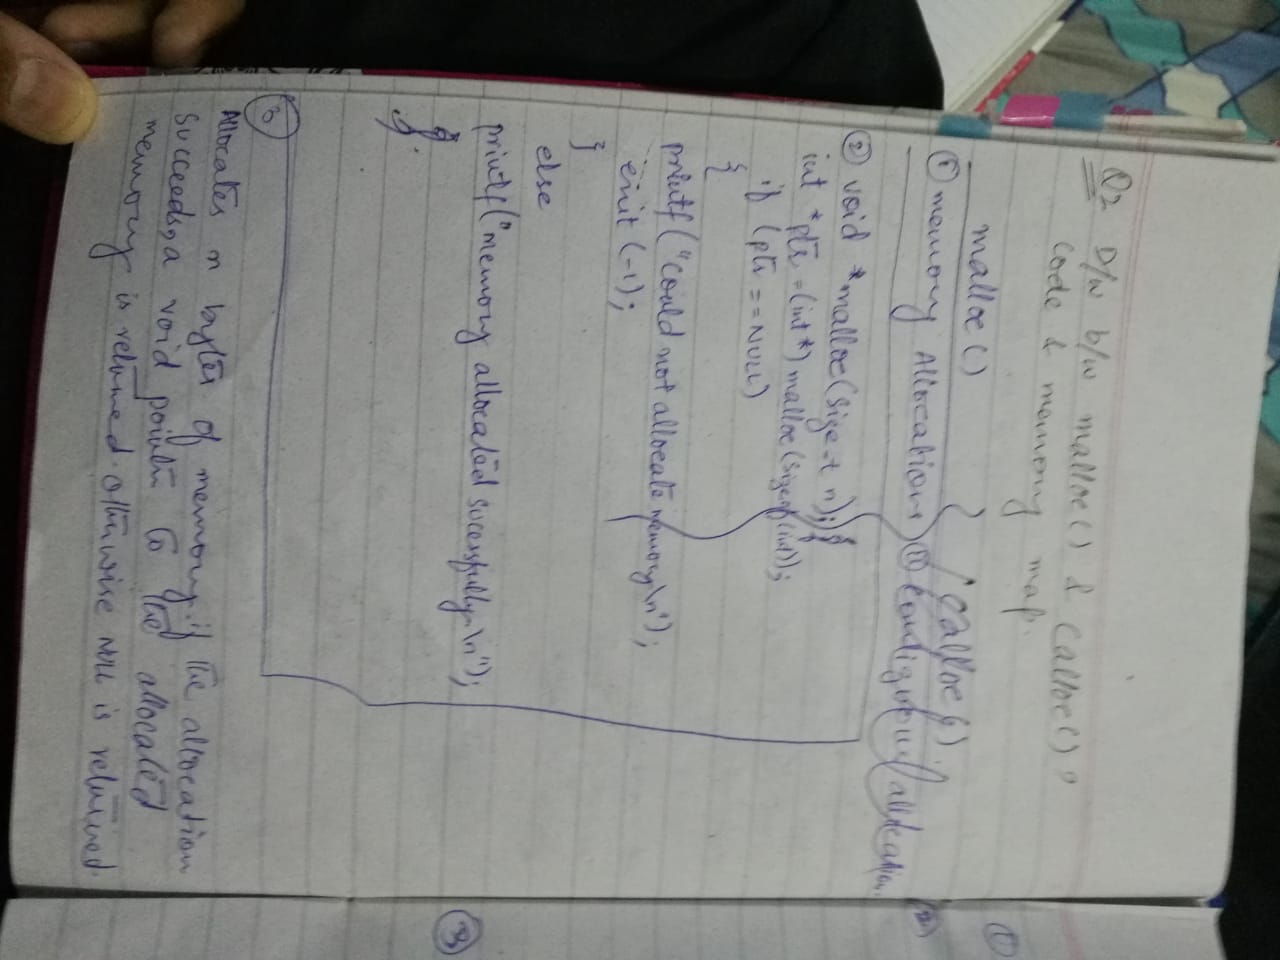 Q2 D/w b/w malloc() & Calloc()?
code & memory map.
malloc()
calloc().
① memory Allocation
① Contiguous allocation.
② void *malloc(size-t n);
int *ptr = (int*) malloc(sizeof(int));
if (ptr == NULL)
{
printf("could not allocate memory\n");
exit(-1);
}
else
printf("memory allocated sucessfully.\n");
③
Allocates n bytes of memory. if the allocation
succeeds, a void pointer to the allocated
memory is returned. otherwise NULL is returned.
①
②
③